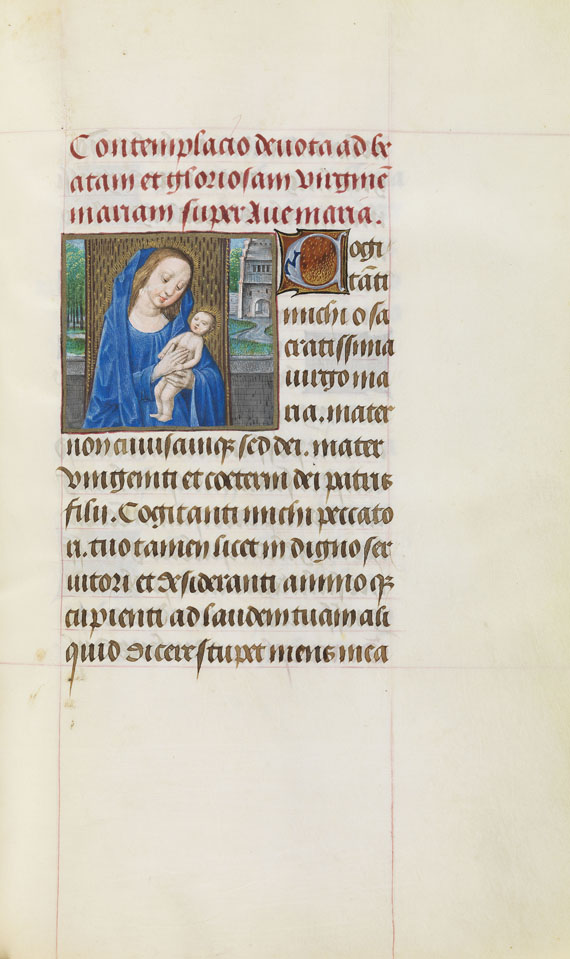 Contemplacio deuota ad be
atam et gloriosam virginē
mariam super Aue maria.
Cogi
tāti
michi o sa
cratissima
uirgo ma
ria. mater
non cuiuscumqꝫ sed dei. mater
vnigeniti et coeterni dei patris
filii. Cogitanti michi peccato
ri. tuo tamen licet indigno ser
uitori et desideranti animo qꝫ
cupienti ad laudem tuam ali
quid dicere stupet mens mea